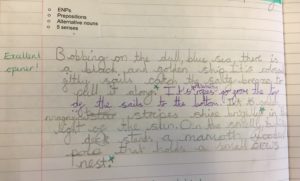 ENPs
Prepositions
Alternative nouns
5 senses
Excellent
opener!
Bobbing on the dull, blue sea there is
a black and golden ship. It's
sails catch the salty breeze to
pull it along. It's ropes go from the top
of the sails to the bottom. It's
stripes shine brightly in the
light of the sun. On the
deck stands a mammoth wooden
that holds a small crows
nest.